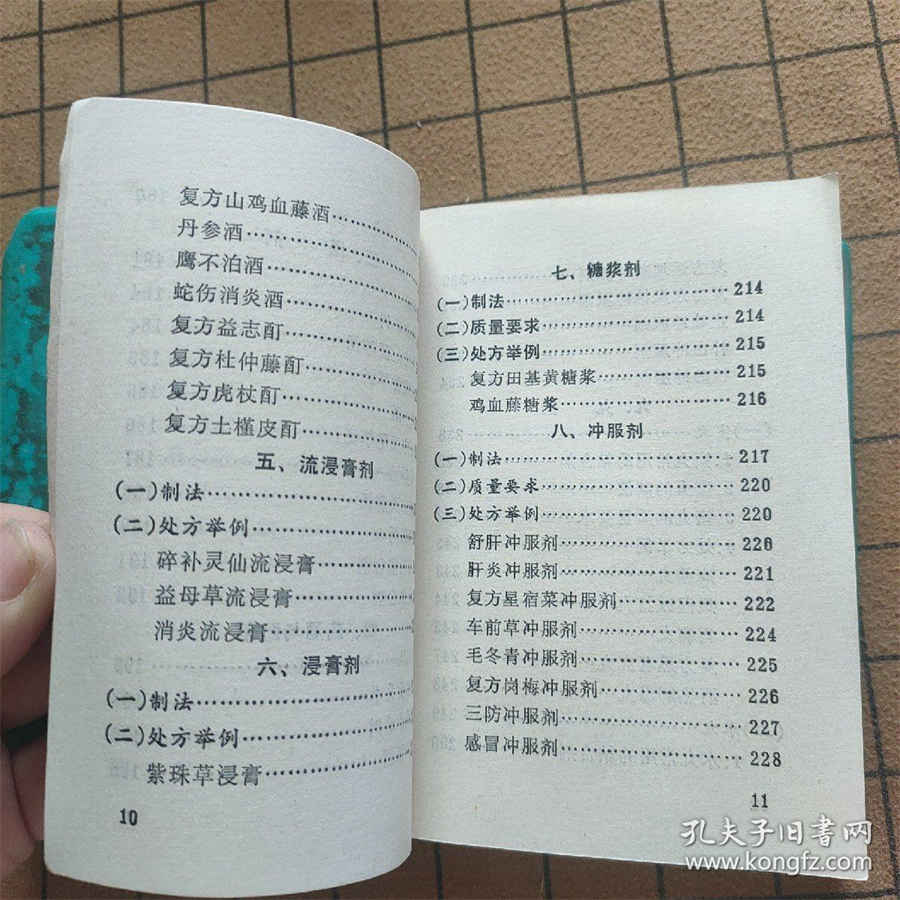 复方山鸡血藤酒……………
丹参酒……………
鹰不泊酒……………
蛇伤消炎酒……………
复方益志酊……………
复方杜仲藤酊……………
复方虎杖酊……………
复方土槿皮酊……………
五、流浸膏剂
(一)制法……………
(二)处方举例……………
碎补灵仙流浸膏……………
益母草流浸膏……………
消炎流浸膏……………
六、浸膏剂
(一)制法……………
(二)处方举例……………
紫珠草浸膏……………
10
七、糖浆剂
(一)制法……………214
(二)质量要求……………214
(三)处方举例……………215
复方田基黄糖浆……………215
鸡血藤糖浆……………216
八、冲服剂
(一)制法……………217
(二)质量要求……………220
(三)处方举例……………220
舒肝冲服剂……………220
肝炎冲服剂……………221
复方星宿菜冲服剂……………222
车前草冲服剂……………224
毛冬青冲服剂……………225
复方岗梅冲服剂……………226
三防冲服剂……………227
感冒冲服剂……………228
11
孔夫子旧书网
www.kongfz.com